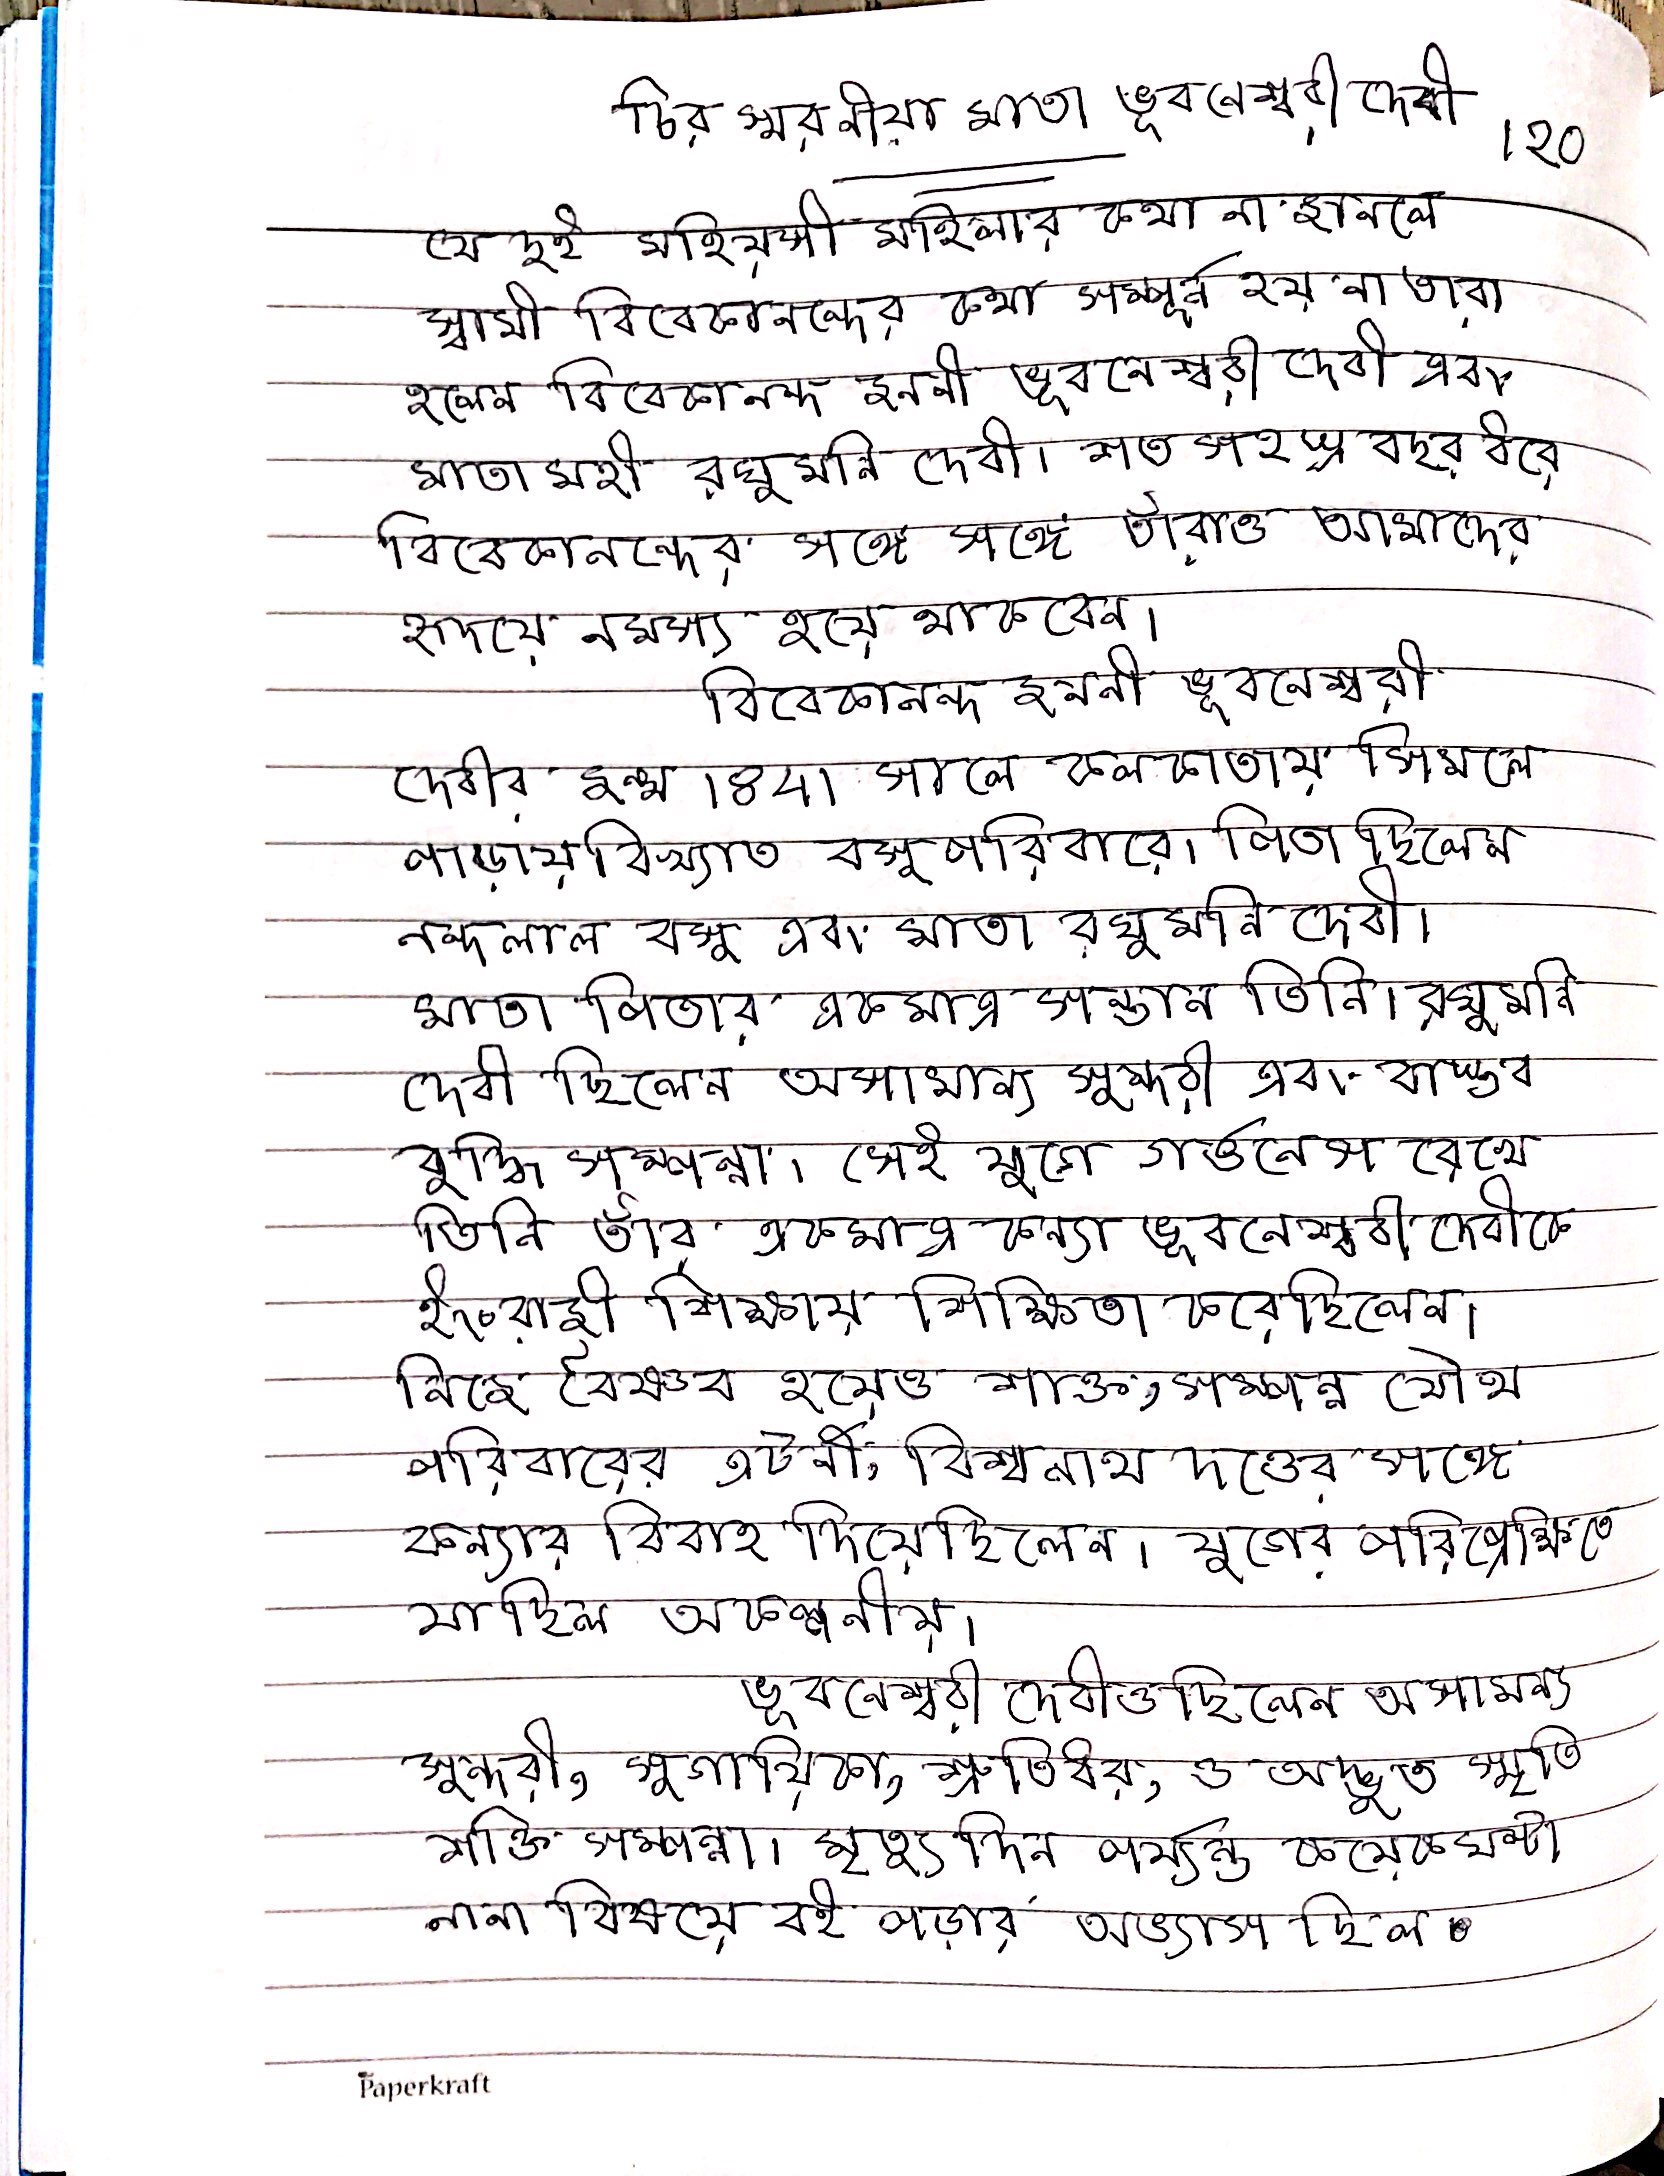 চির স্মরনীয়া মাতা ভূবনেশ্বরী দেবী
।২০
যে দুই মহিয়সী মহিলার কথা না জানলে
স্বামী বিবেকানন্দের কথা সম্পূর্ন হয় না তারা
হলেন বিবেকানন্দ জননী ভূবনেশ্বরী দেবী এবং
মাতা মহী রঘুমনি দেবী। শত সহস্র বছর ধরে
বিবেকানন্দের সঙ্গে সঙ্গে তাঁরাও আমাদের
হৃদয়ে নমস্য হয়ে থাকবেন।
বিবেকানন্দ জননী ভূবনেশ্বরী
দেবীর জন্ম 1841 সালে কলকাতায় সিমলে
পাড়ায় বিখ্যাত বসু পরিবারে। পিতা ছিলেন
নন্দলাল বসু এবং মাতা রঘুমনি দেবী।
মাতা পিতার একমাত্র সন্তান তিনি। রঘুমনি
দেবী ছিলেন অসামান্য সুন্দরী এবং বাস্তব
বুদ্ধি সম্পন্না। সেই যুগে গর্ভনেস রেখে
তিনি তাঁর একমাত্র কন্যা ভূবনেশ্বরী দেবীকে
ইংরাজী শিক্ষায় শিক্ষিতা করেছিলেন।
নিজে বৈষ্ণব হয়েও শাক্ত, সম্পন্ন যৌথ
পরিবারের এটর্নী, বিশ্বনাথ দত্তের সঙ্গে
কন্যার বিবাহ দিয়েছিলেন। যুগের পরিপ্রেক্ষিতে
যা ছিল অকল্পনীয়।
ভূবনেশ্বরী দেবীও ছিলেন অসামন্য
সুন্দরী, সুগায়িকা, শ্রুতিধর, ও অদ্ভুত স্মৃতি
শক্তি সম্পন্না। মৃত্যু দিন পর্য্যন্ত কয়েক ঘন্টা
নানা বিষয়ে বই পড়ার অভ্যাস ছিল।
Paperkraft